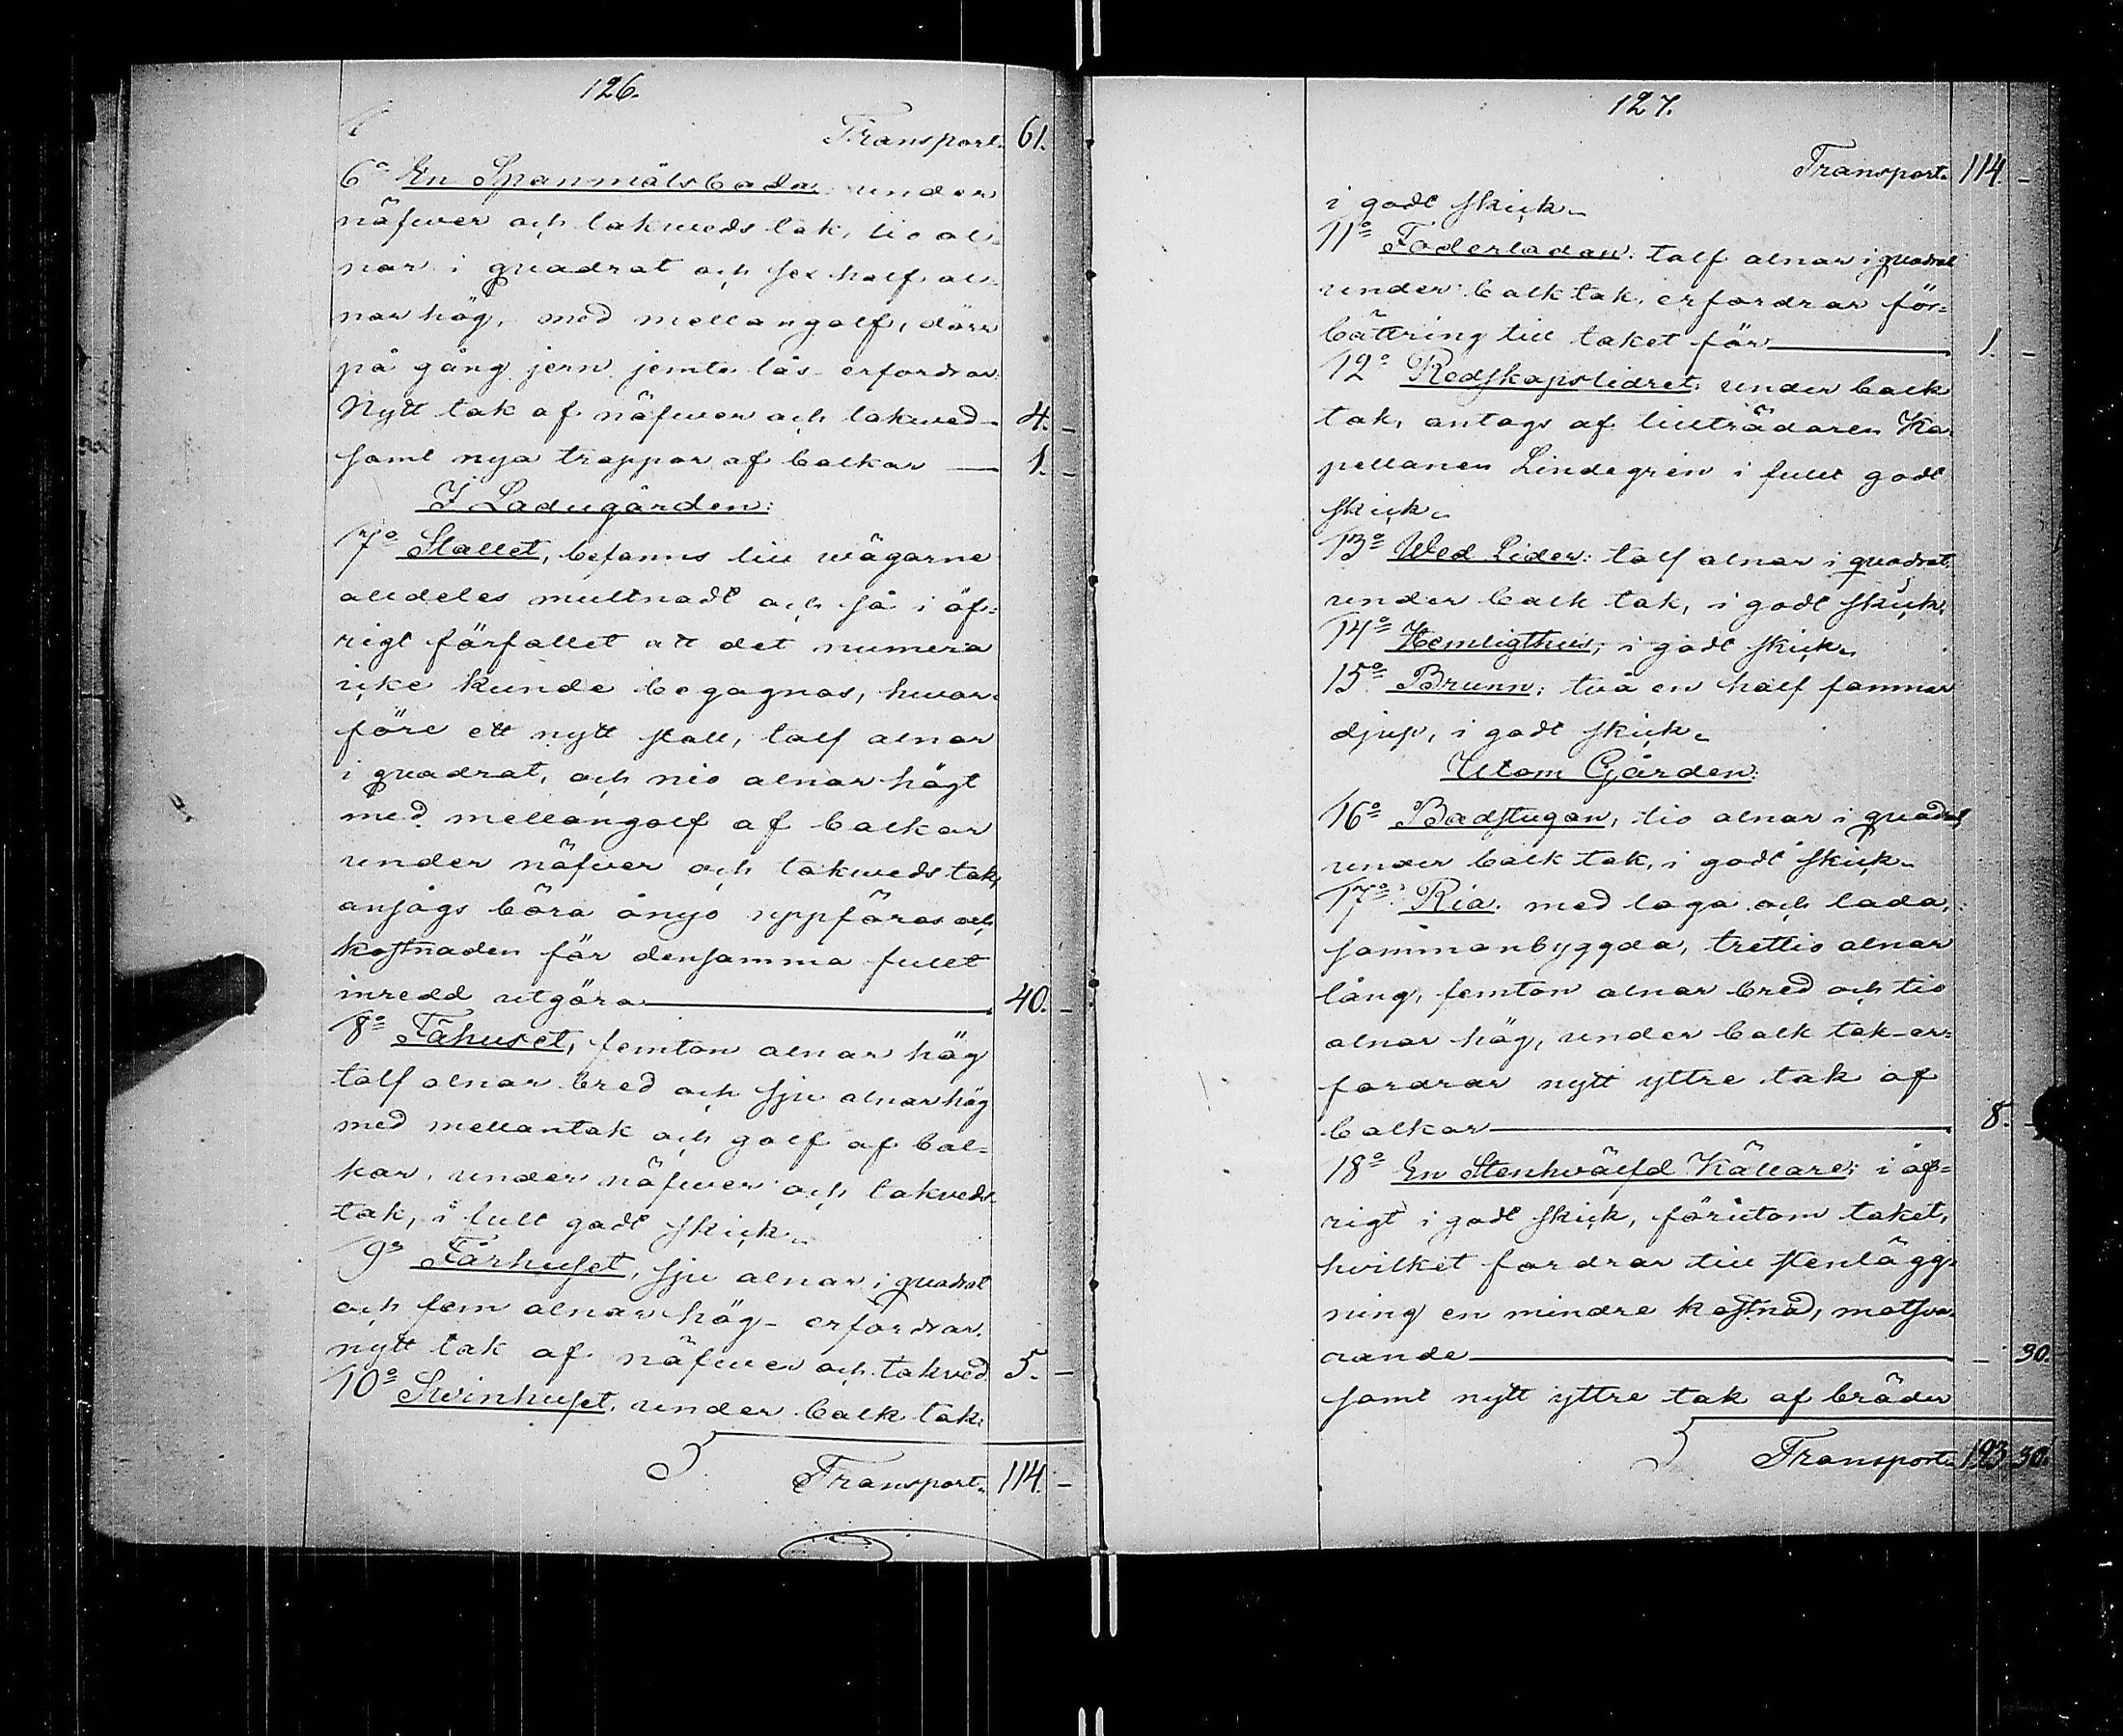 126.
Transport. 61.
6o En Spanmålsboda under
näfwer och takweds tak, tio al-
nar i quadrat och sex half al-
nar hög, med mellangolf, dörr
på gång jern jemte lås erfordrar
Nytt tak af näfwer och takwed 4. -
samt nya trappor af balkar 1. -
I Ladugården:
7o Stallet, befanns till wägarne
alldeles multnadt och så i öf-
rigt förfallet att det numera
icke kunde begagnas, hwar-
före ett nytt stall, tolf alnar
i quadrat, och nio alnar högt
med mellangolf af balkar
under näfver och takweds tak,
ansågs böra ånyo uppföras och
kostnaden för densamma fullt
inredd utgöra 40. -
8o Fähuset, femton alnar hög
tolf alnar bred och sju alnar hög
med mellantak och golf af bal-
kar, under näfwer och takveds
tak, i fullt godt skick.
9o Fårhuset, sju alnar i quadrat
och fem alnar hög - erfordrar
nytt tak af näfwer och takved 5. -
10o Swinhuset, under balk tak
Transport. 114. -
127.
Transport. 114. -
i godt skick.
11o Foderladan: tolf alnar i quadrat
under balk tak, erfordrar för-
bättring till taket för 1. -
12o Redskapslidret: under balk
tak, antogs af tillträdaren Ka-
pellanen Lindegrén i fullt godt
skick.
13o Wed Lider: tolf alnar i quadrat,
under balk tak, i godt skick.
14o Hemligthus; i godt skick.
15o Brunn: två en half famnar
djup, i godt skick.
Utom Gården:
16o Badstugan, tio alnar i quadrat
under balk tak, i godt skick.
17o Ria: med loga och lada,
sammanbyggda, trettio alnar
lång, femton alnar bred och tio
alnar hög, under balk tak - er-
fordrar nytt yttre tak af
balkar 8. -
18o En Stenhvälfd Källare; i öf-
rigt i godt skick, förutom taket,
hvilket fordrar till stenlägg-
ning en mindre kostnad, motsva-
rande - 30.
samt nytt yttre tak af bräder
Transport. 123 30.